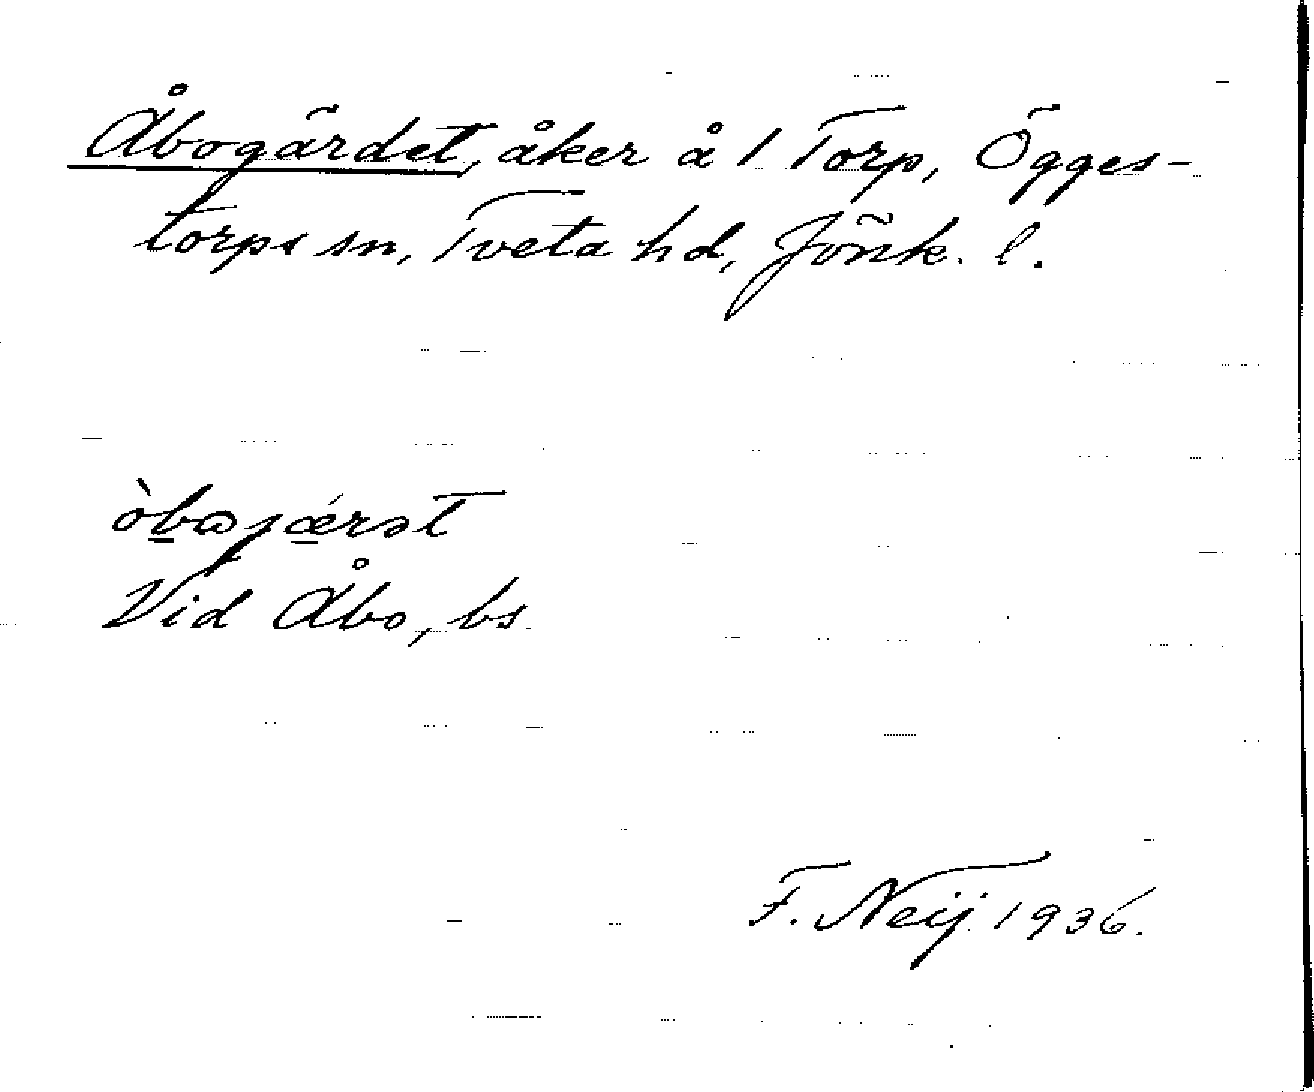 Åbogärdet, åker å 1 Torp, Ögges-
torps sn, Tveta hd, Jönk. l.
òbɷjǽrət
Vid Åbo, bs
F. Neij 1936.